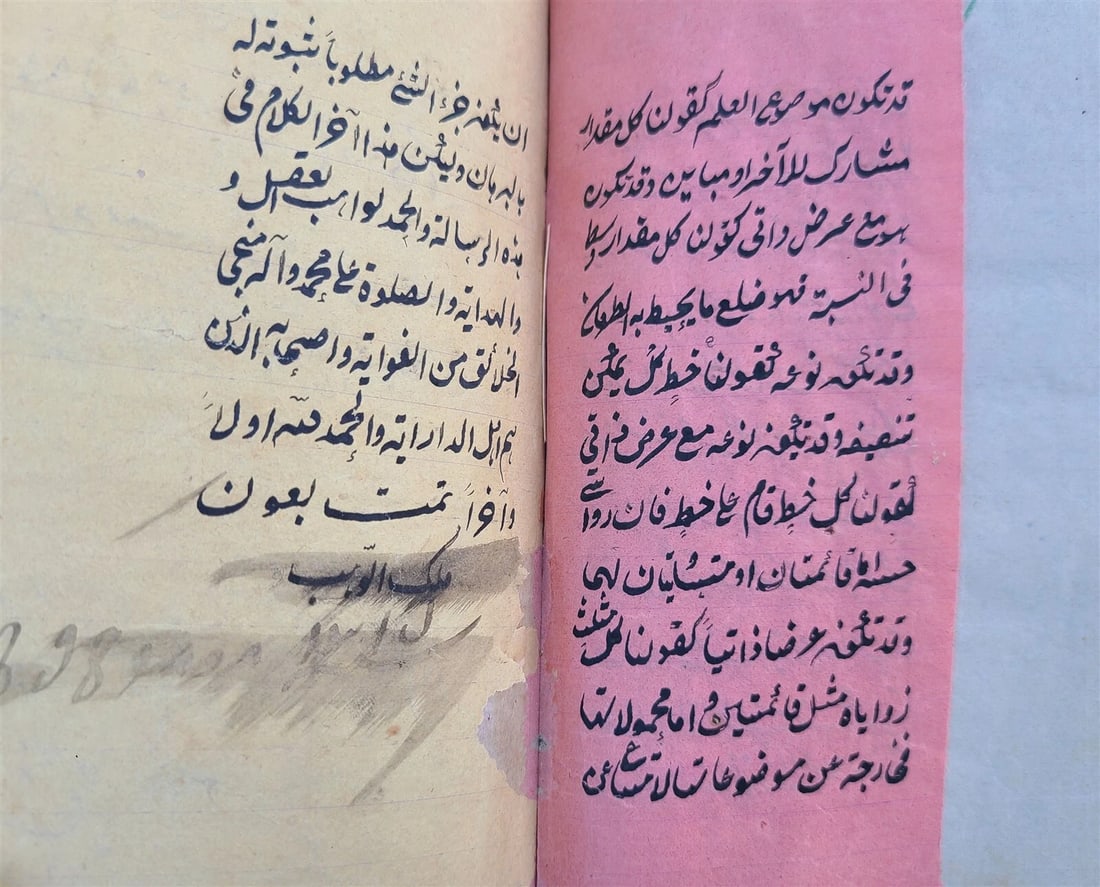 قد تكون موضوع العلم كقولنا كل مقدار
مشارك للآخر او مباين وقد تكون
هو مع عرض ذاتي كقولنا كل مقدار وسط
فى النسبة فهو ضلع ما يحيط به الطرفان
وقد تكون نوعه كقولنا خط كل يمكن
تنصيفه وقد تكون نوعه مع عرض ذاتي
كقولنا كل خط قام على خط فان
اما قائمتان او متساويتان لهما
وقد تكون عرضا ذاتياً كقولنا كل مثلث
زواياه مثل قائمتين و اما محمولاتها
فخارجة عن موضوعاتها لامتناع
ان يكون جزء الشئ مطلوباً بثبوته له
بالبرهان وليكن هذا آخر الكلام فى
هذه الرسالة والحمد لواهب العقل و
والهداية والصلوة على محمد وآله منجى
الخلائق من الغواية واصحابه الذين
هم اهل الدراية والحمد لله اولاً
وآخراً تمت بعون
ملك الوهب